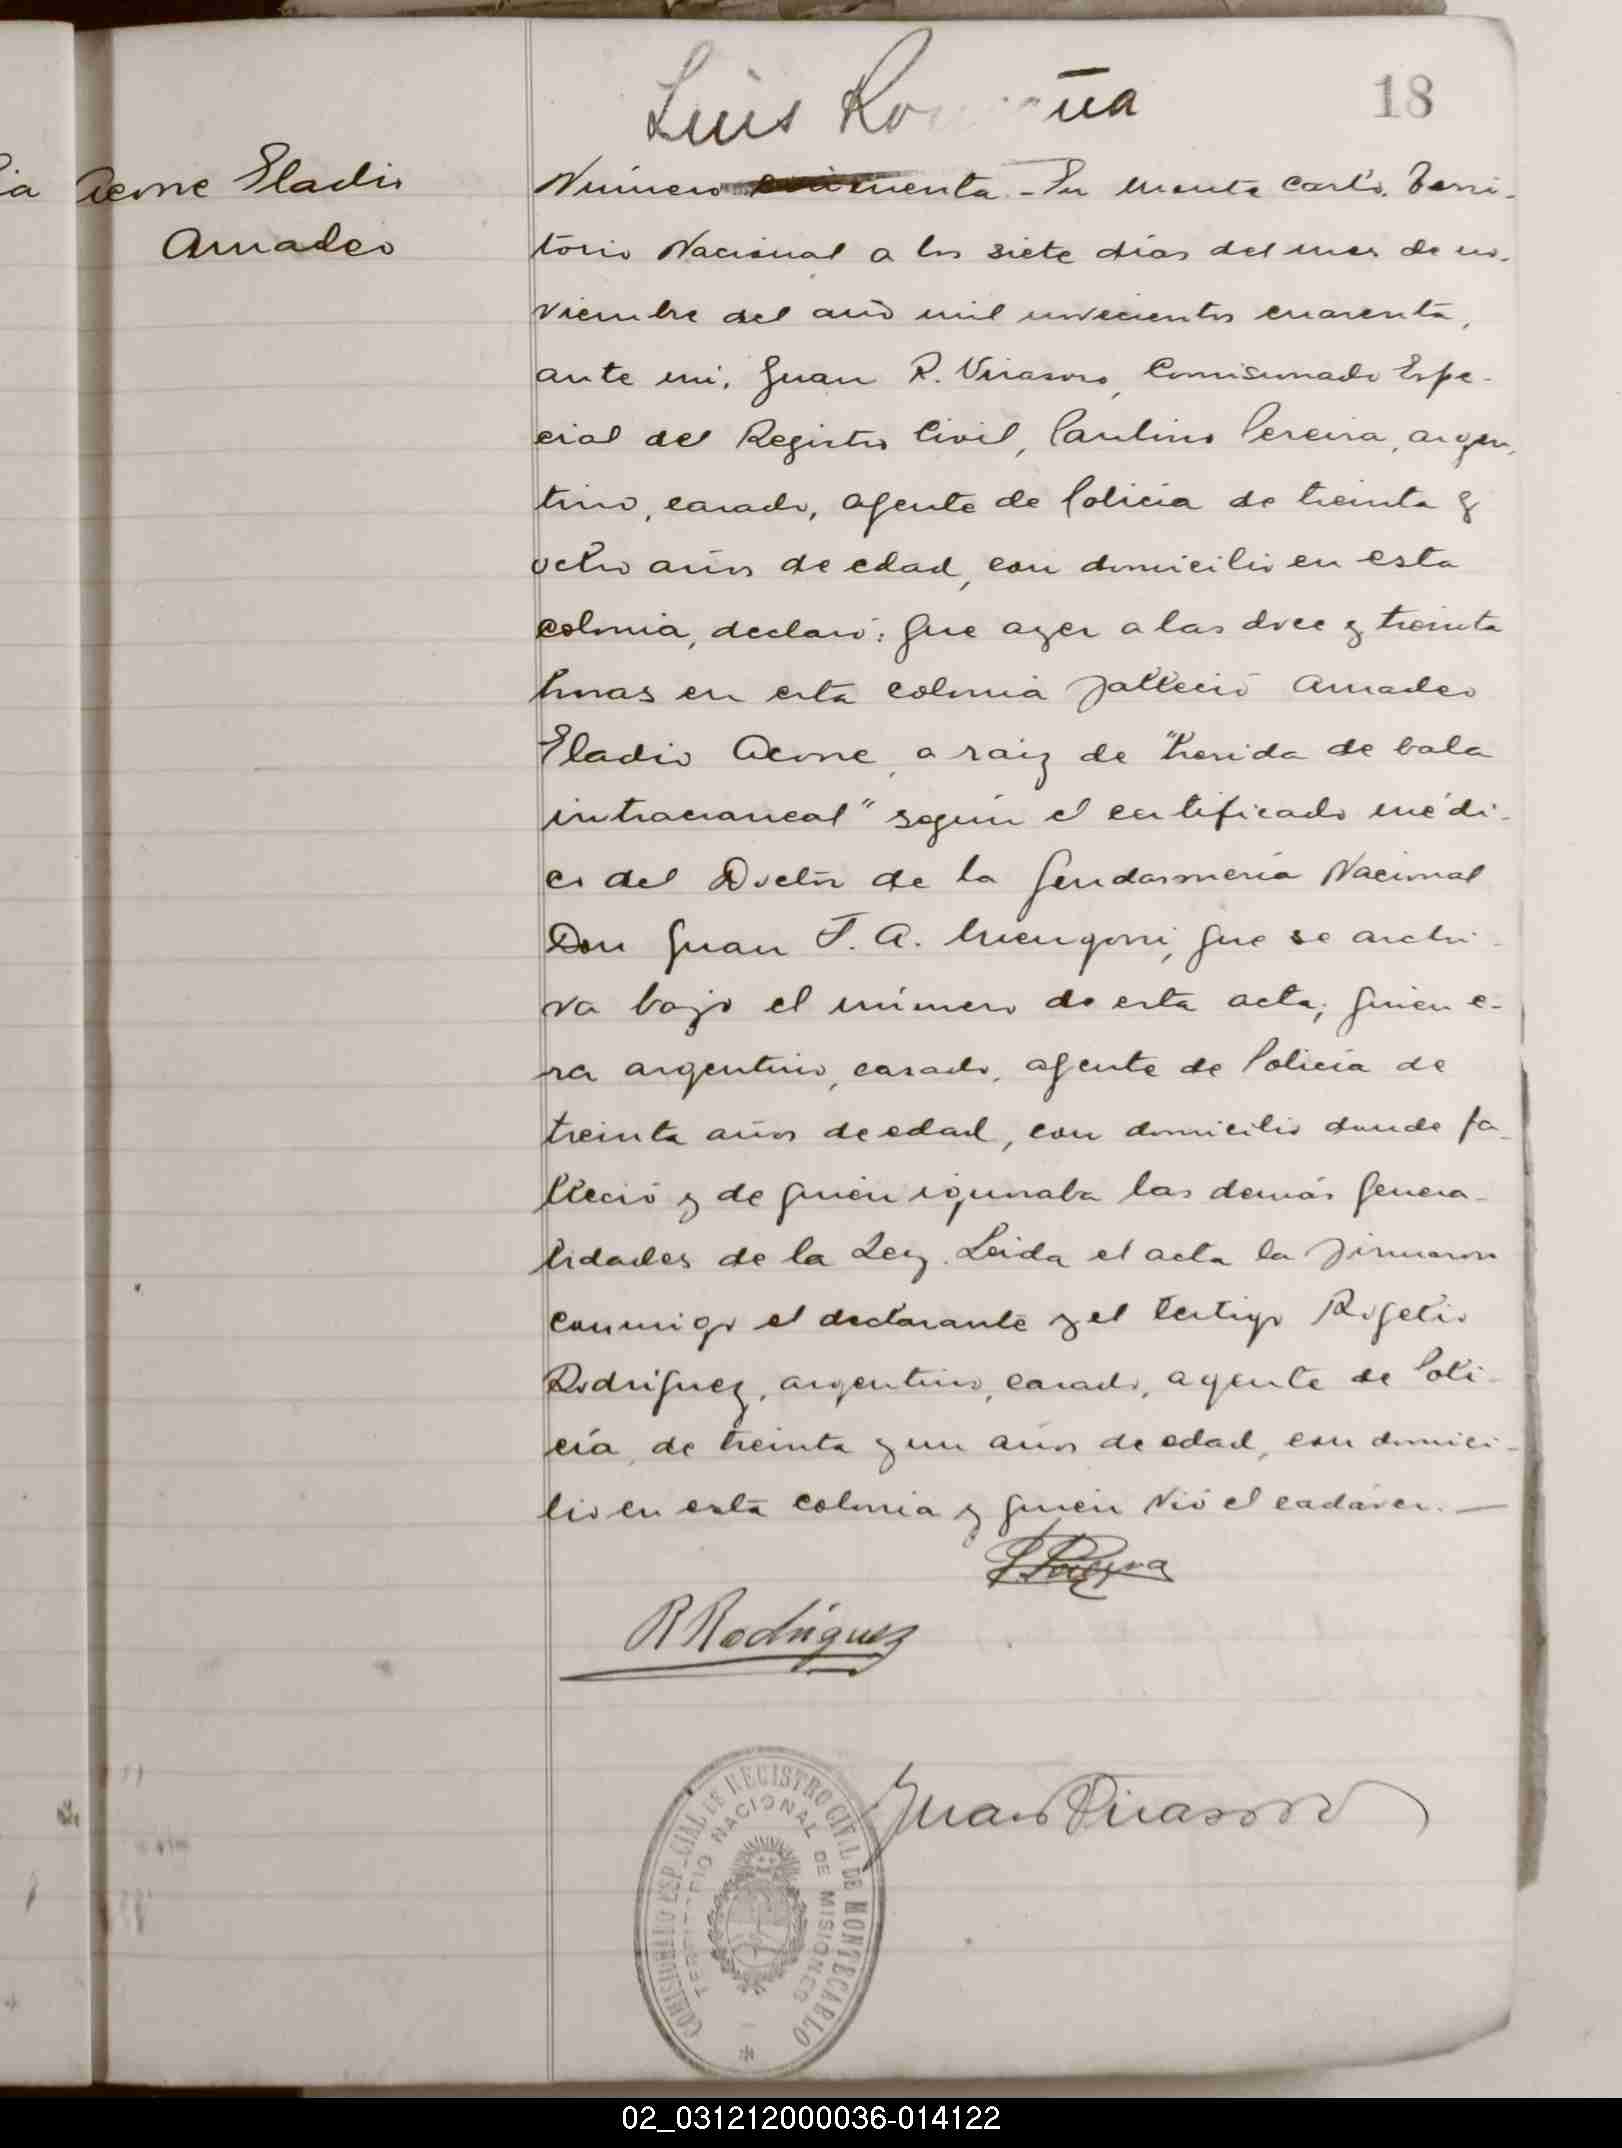 Luis Ro
18
Acone Eladio
Amadeo
Número cincuenta. - En Monte Carlo, Terri-
torio Nacional a los siete días del mes de no-
viembre del año mil novecientos cuarenta,
ante mi, Juan R. Virasoro, Comisionado Espe-
cial del Registro Civil, Paulino Pereira, argen-
tino, casado, agente de Policia de treinta y
ocho años de edad, con domicilio en esta
colonia, declaró: que ayer a las doce y treinta
horas en esta colonia falleció Amadeo
Eladio Acone, a raiz de "herida de bala
intracraneal" según el certificado médi-
co del Doctor de la Gendarmería Nacional
Don Juan F. A. Mengoni, que se archi-
va bajo el número de esta acta; quien e-
ra argentino, casado, agente de Policía de
treinta años de edad, con domicilio donde fa-
lleció y de quién ignoraba las demás genera-
lidades de la Ley. Leida el acta la firmaron
conmigo el declarante y el testigo Rogelio
Rodríguez, argentino, casado, agente de Poli-
cía, de treinta y un años de edad, con domici-
lio en esta colonia y quién vió el cadáver. —
P. Pereyra
R Rodríguez
Juan Virasoro
COMISIONADO ESPECIAL DE REGISTRO CIVIL DE MONTECARLO
TERRITORIO NACIONAL DE MISIONES
02_031212000036-014122